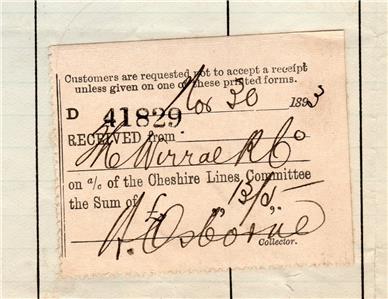 Customers are requested not to accept a receipt
unless given on one of these printed forms.
Nov 30 1893
D 41829
RECEIVED from
The Wirral R Co
on a/c of the Cheshire Lines Committee
the Sum of £ " 13/5
Osborne
Collector.